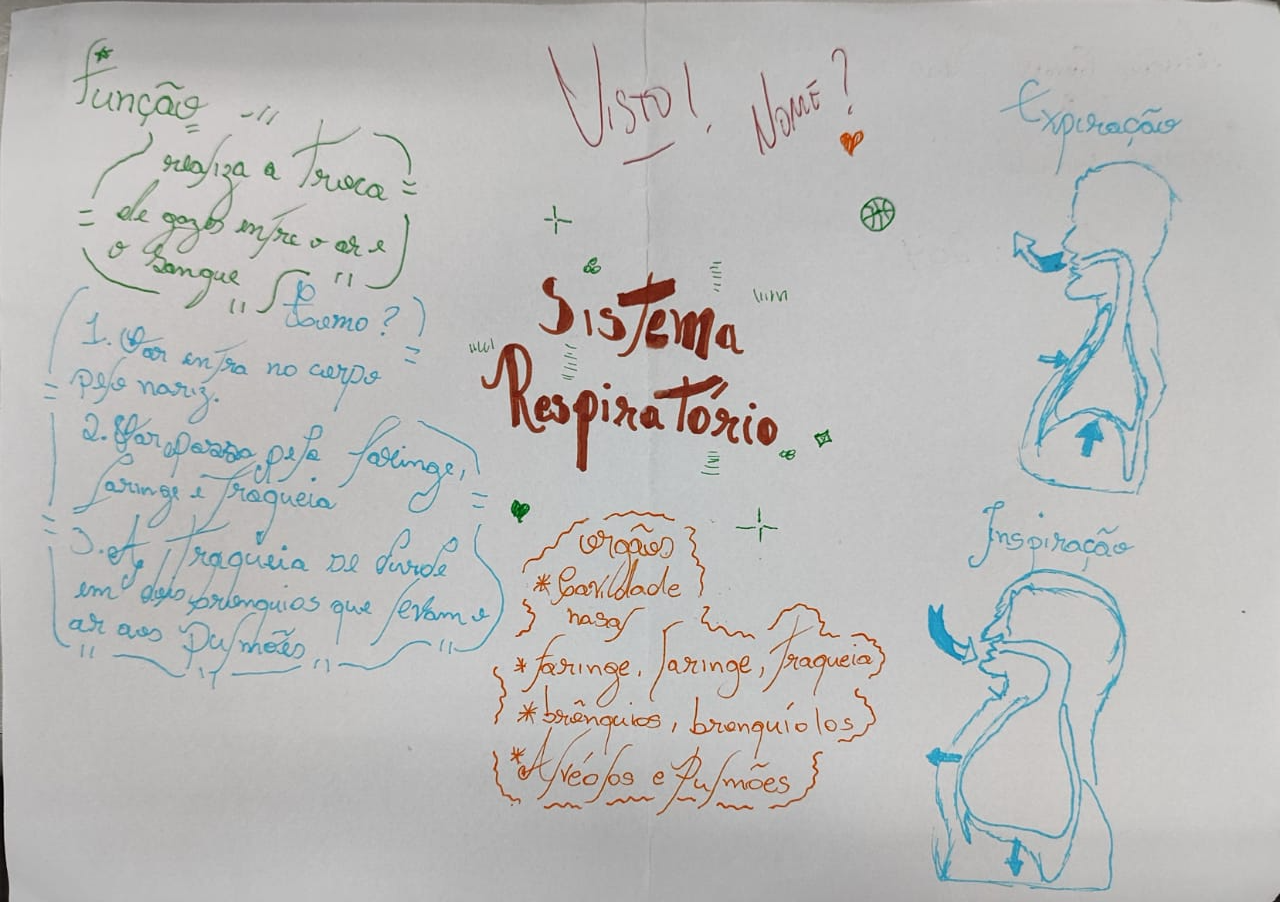 Função
realiza a Troca
de gazes entre o ar e
o sangue
Como?
1. O ar entra no corpo
pelo nariz.
2. O ar passa pela faringe,
laringe e Traqueia
3. A Traqueia se divide
em dois brônquios que levam o
ar aos Pulmões
Visto!
Nome?
Sistema
Respiratório
orgãos
*Cavidade
nasal
*faringe, laringe, Traqueia
*brônquios, bronquíolos
*Alvéolos e Pulmões
Expiração
Inspiração